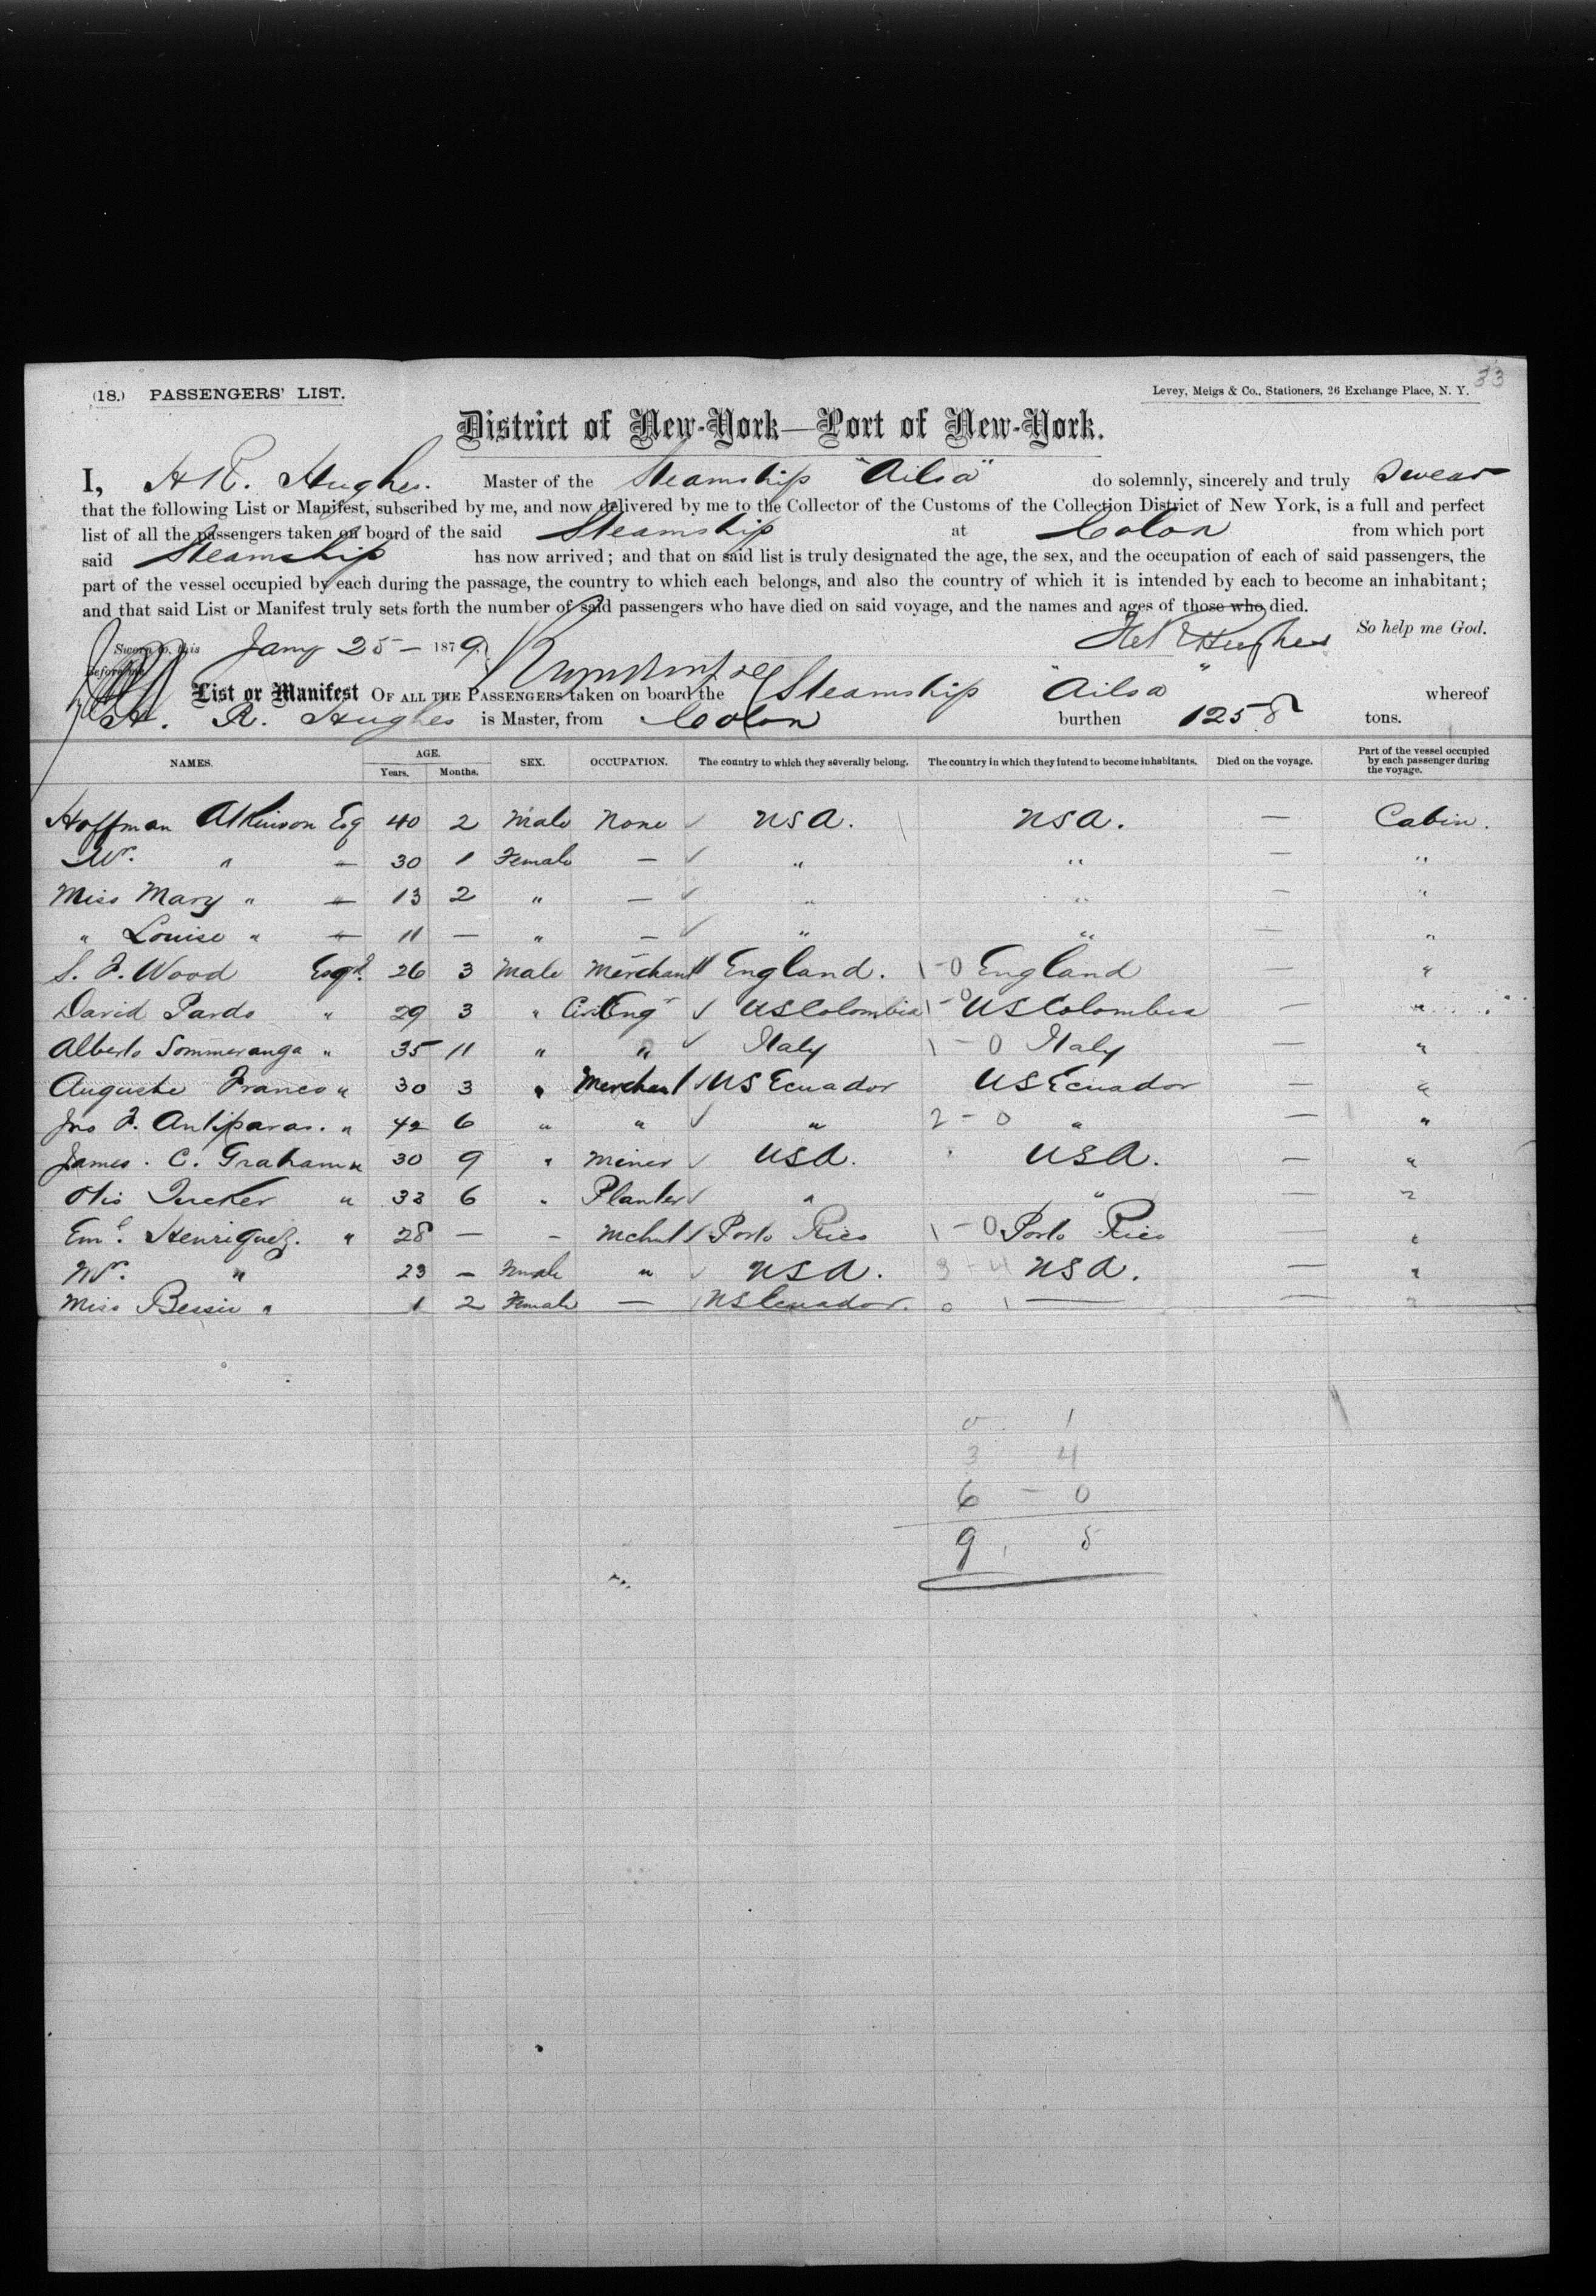 33
(18.) PASSENGERS' LIST. Levey, Meigs & Co., Stationers, 26 Exchange Place, N. Y.
District of New-York—Port of New-York.
I, H R. Hughes. Master of the Steamship "Ailsa" do solemnly, sincerely and truly swear
that the following List or Manifest, subscribed by me, and now delivered by me to the Collector of the Customs of the Collection District of New York, is a full and perfect
list of all the passengers taken on board of the said Steamship at Colon from which port
said Steamship has now arrived; and that on said list is truly designated the age, the sex, and the occupation of each of said passengers, the
part of the vessel occupied by each during the passage, the country to which each belongs, and also the country of which it is intended by each to become an inhabitant;
and that said List or Manifest truly sets forth the number of said passengers who have died on said voyage, and the names and ages of those who died.
So help me God.
Sworn to, this Jany 25 – 1879 Hughes
before me
List or Manifest OF ALL THE PASSENGERS taken on board the Steamship "Ailsa" whereof
H. R. Hughes is Master, from Colon burthen 1258 tons.
NAMES. AGE. Years. Months. SEX. OCCUPATION. The country to which they severally belong. The country in which they intend to become inhabitants. Died on the voyage. Part of the vessel occupied by each passenger during the voyage.
Hoffman Atkinson Esq 40 2 Male None ✓ USA. USA. — Cabin.
" 30 1 Female — ✓ " " — "
Miss Mary " 13 2 " — ✓ " " — "
" Louise " 11 — " — ✓ " " — "
S. F. Wood Esqr. 26 3 Male Merchant England. 1-0 England — "
David Pardo " 29 3 " Civil Eng ✓ US Colombia 1-0 US Colombia — "
Alberto Sommeranga " 35 11 " " ✓ Italy 1-0 Italy — "
Auguste Franco " 30 3 " Merchant ✓ US Ecuador US Ecuador — "
Jno F. Antiparas. " 42 6 " " ✓ " 2-0 " — "
James. C. Graham " 30 9 " Miner ✓ USA. USA. — "
Otis Tucker " 33 6 " Planter ✓ " " — "
Eml. Henriquez. " 28 — " Mchnt ✓ Porto Rico 1-0 Porto Rico — "
" 23 — " ✓ USA. 3-4 USA. — "
Miss Bessie " 1 2 Female — US Ecuador. 0 1 — — "
0 1
3 4
6 - 0
9 5